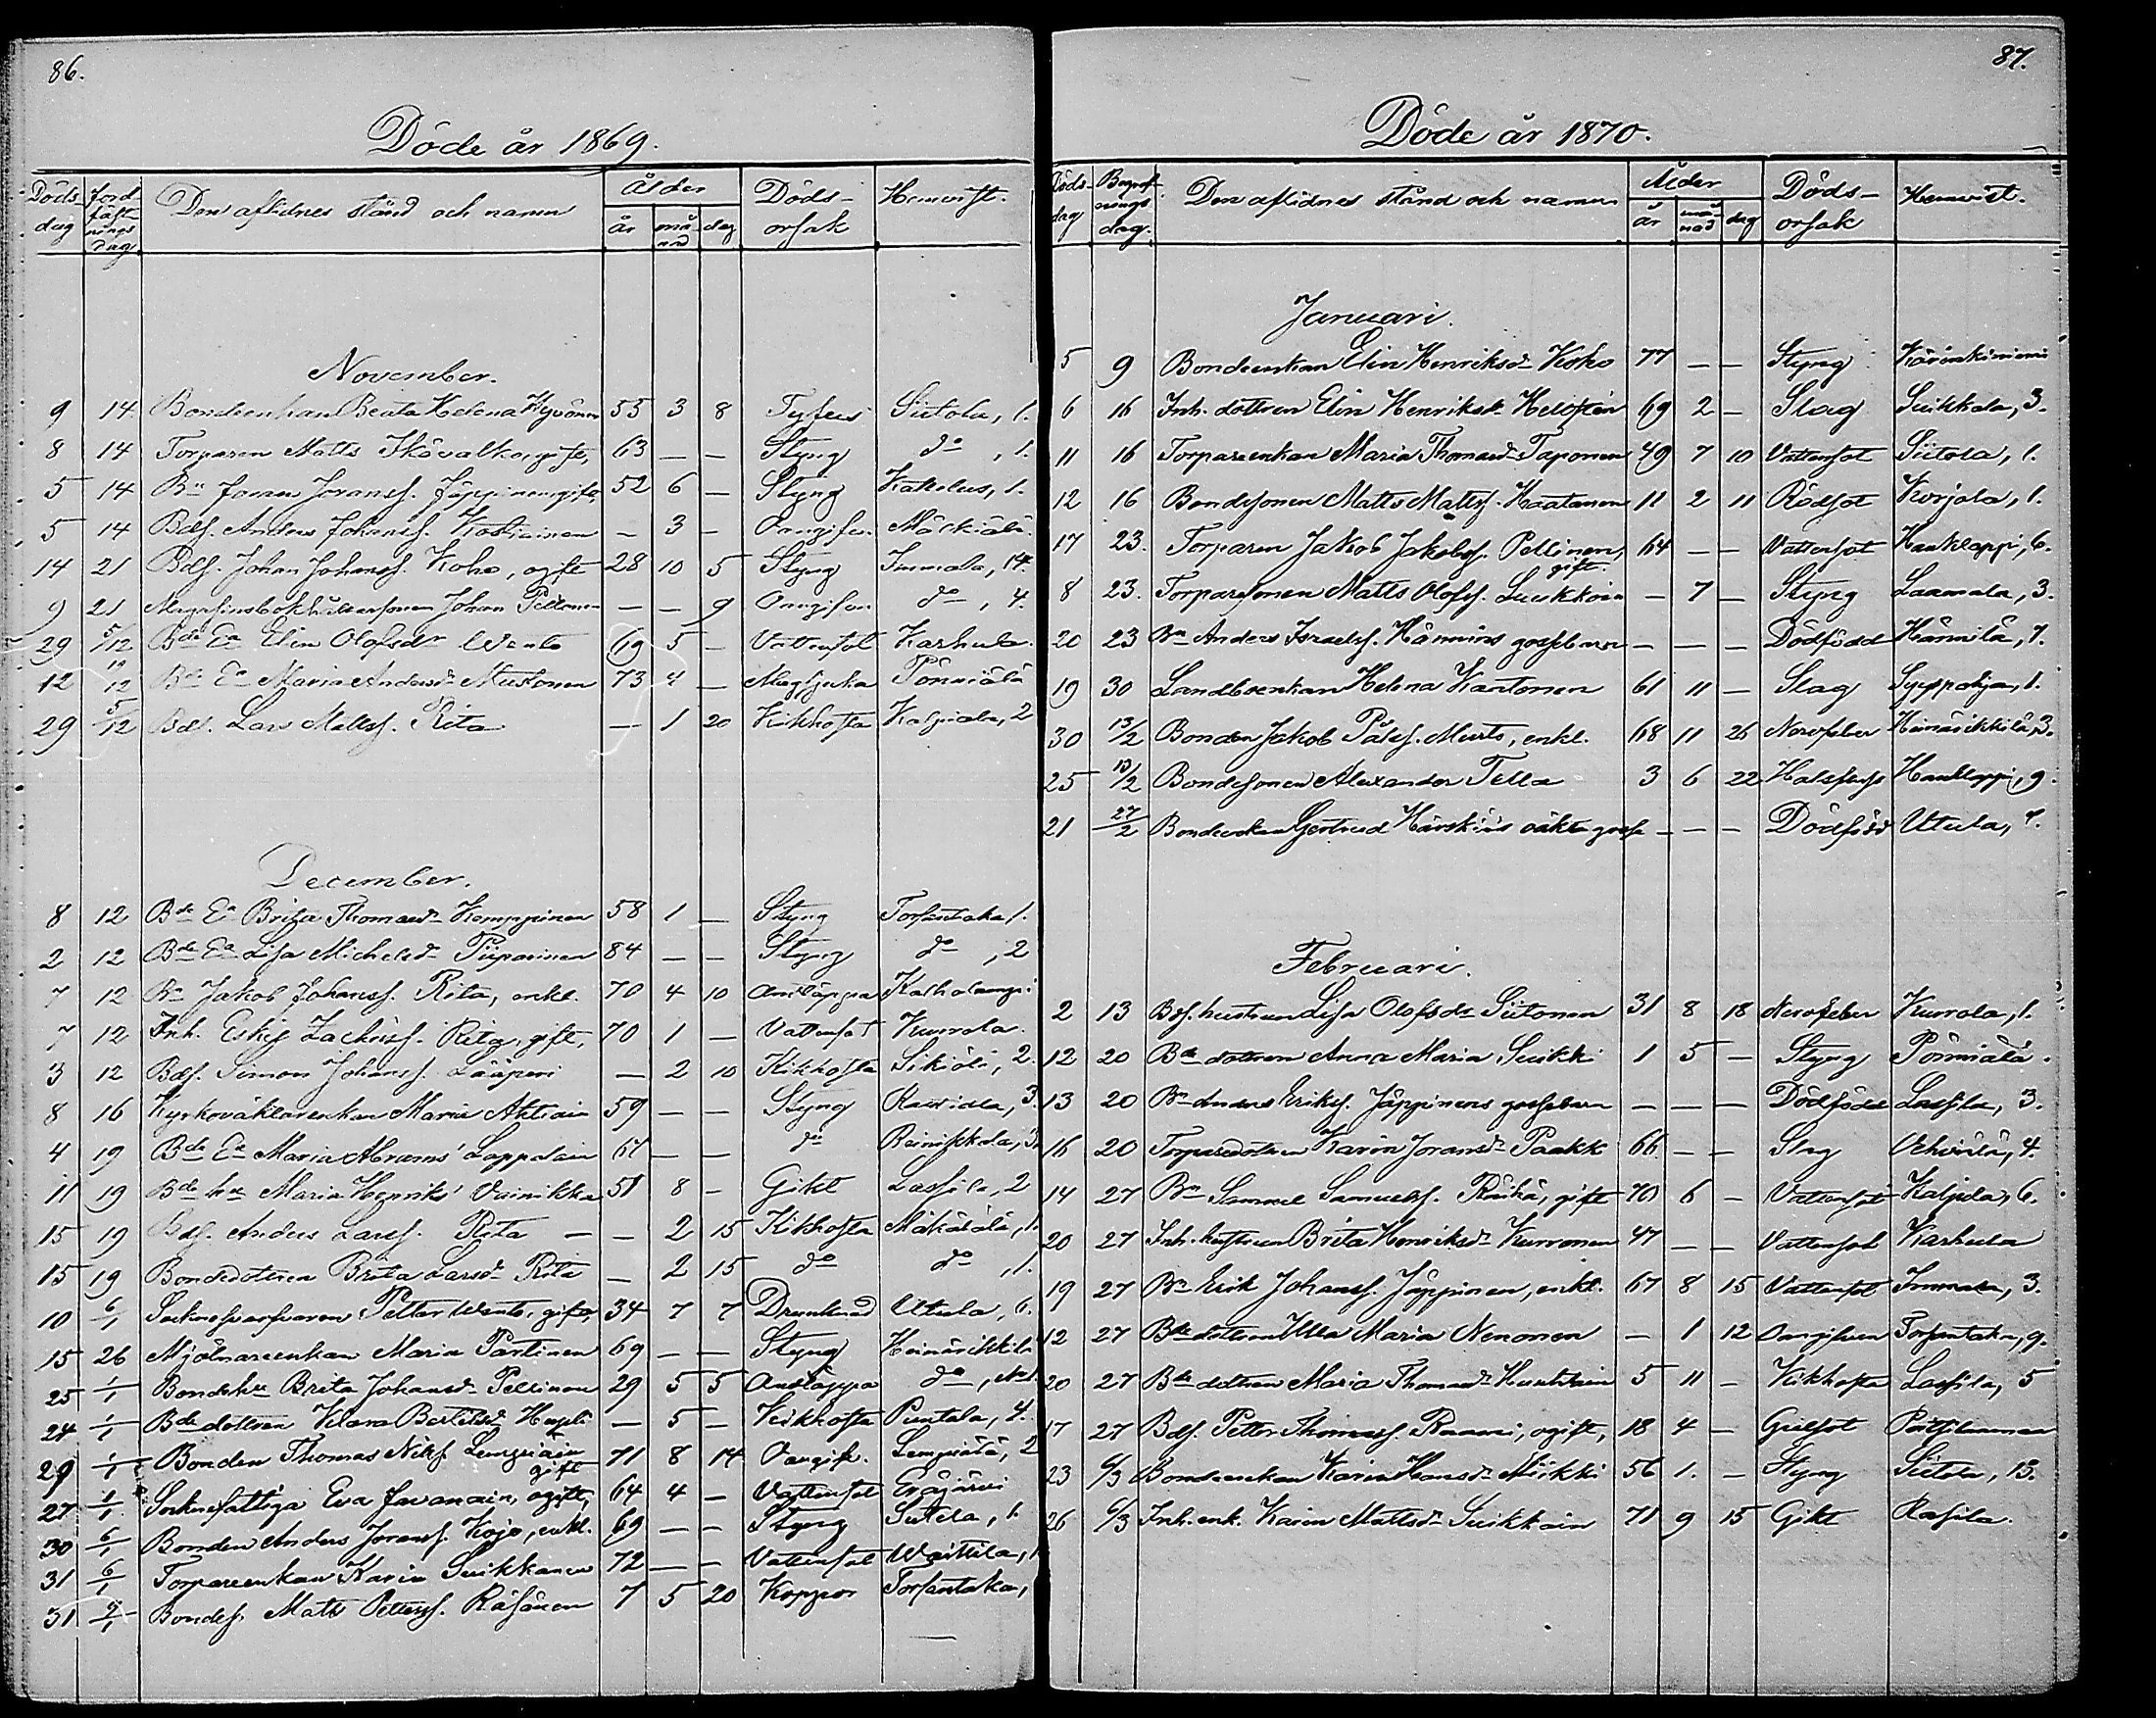 86.
Döde år 1869.
Döds-dag Jordfästningsdag Den aflidnes stånd och namn Ålder år månad dag Dödsorsak Hemvist.
November.
9 14 Bondeenkan Beata Helena Hyvönen 55 3 8 Tyfus Siitola, 1.
8 14 Torparen Matts Ikävalko, gift, 63 — — Styng do, 1.
5 14 Bn Jöran Joranss. Jäppinen, gift, 52 6 — Styng Kakelus, 1.
5 14 Bds. Anders Johanss. Kostiainen — 3 — Oangifen Mäckiälä.
14 21 Bds. Johan Johanss. Koho, ogift 28 10 5 Styng Immala, 14.
9 21 Magasinsbokhållaresonen Johan Pellonen — — 9 Oangifven do, 4.
29 5/12 Bde Ea Elin Olofsdr Wento 69 5 — Vattensot Karhula.
12 12/12 Bde Ea Maria Andersdr Mustonen 73 4 — Pönniälä
29 5/12 Bds. Lars Mattss. Rita — 1 20 Kikhosta Kalpiala, 2
December.
8 12 Bde Ea Brita Thomasdr Kemppinen 58 1 — Styng Torsantaka 1.
2 12 Bde Ea Lisa Michelsdr Piiparinen 84 — — Styng do, 2
7 12 Bn Jakob Johanss. Rita, enkl. 70 4 10 Andtäppa Kalholampi
7 12 Inh. Eskil Zachriss. Rita, gift, 70 1 — Vattensot Kurrola.
3 12 Bds. Simon Johanss. Lääperi — 2 10 Kikhosta Sikiölä, 2.
8 16 Kyrkoväktarenkan Maria Ahtiain 59 — — Styng Rautiala, 3.
4 19 Bde Ea Maria Abrams' Lappalain 67 — — do Rainikkala, 3.
11 19 Bde hu Maria Henriks' Vainikka 51 8 — Gikt Lassila, 2
15 19 Bds. Anders Larss. Rita — — 2 15 Kikhosta Mäkälälä, 1.
15 19 Bondedottren Brita Larsdr Rita — 2 15 do do, 1.
10 6/1 Sockneskräddaren Petter Wento, gift, 34 7 7 Drunknad Utula, 6.
15 26 Mjölnareenkan Maria Partinen 69 — — Styng Heinärikkilä
25 1/1 Bondehu Brita Johansdr Pellinen 29 5 5 Andtäppa do, No 1.
24 1/1 Bde dottren Klara Bertilsdr Huuhi — 5 — Kikhosta Puntala, 4.
29 1/1 Bonden Thomas Nilss. Lempiäin gift 71 8 14 Oangifv. Lempiälä, 2
27 1/1 Socknefattiga Eva Javanain, ogift, 64 4 — Vattensot Eräjärvi
30 6/1 Bonden Anders Joranss. Kojo, enkl. 69 — — Styng Siitola, 1.
31 6/1 Torpareenkan Karin Suikkanen 72 — — Vattensot Waittila, 1
31 9/1 Bondes. Matts Petterss. Räsänen 7 5 20 Koppor Torsantaka,
87.
Döde år 1870.
Döds-dag Begrafningsdag. Den aflidnes stånd och namn Ålder år månad dag Dödsorsak Hemvist.
Januari.
5 9 Bondeenkan Elin Henriksdr Koho 77 — — Styng Kärinkiniemi
6 16 Inh. dottren Elin Henriksdr Helostén 69 2 — Slag Suikkala, 3.
11 16 Torpareenkan Maria Thomasdr Taponen 49 7 10 Vattensot Siitola, 1.
12 16 Bondesonen Matts Mattss. Haatanen 11 2 11 Rödsot Korjola, 1.
17 23. Torparen Jakob Jakobss. Pellinen, gift. 64 — — Vattensot Hauklappi, 6.
8 23. Torparesonen Matts Olofss. Luukkain — 7 — Styng Laamala, 3.
20 23 Bn Anders Israelss. Hännins gossebarn — — — Dödfödd Hännilä, 7.
19 30 Landboenkan Helena Kantonen 61 11 — Slag Syyspohja, 1.
30 13/2 Bonden Jakob Pålss. Musto, enkl. 68 11 26 Nervfeber Heinärikkilä, 3.
25 13/2 Bondesonen Alexander Tella 3 6 22 Halsfluss Hauklappi, 9.
21 27/2 Bondeenkan Gertrud Härskiäs oäkta gosse — — — Dödfödd Utula, 7.
Februari.
2 13 Bds. hustrun Lisa Olofsdr Siitonen 31 8 18 Nervfeber Kurrola, 1.
12 20 Bde dottren Anna Maria Suikki 1 5 — Styng Pönniälä.
13 20 Bn Anders Erikss. Jäppinens gossebarn — — — Dödfödd Lassila, 3.
16 20 Torparedottren Karin Joransdr Paakk 66 — — Slag Vehviälä, 4.
14 27 Bn Samuel Samuelss. Räihä, gift 70 6 — Vattensot Kaljula, 6.
20 27 Inh. hustrun Brita Henriksdr Kurronen 47 — — Vattensot Karhula
19 27 Bn Erik Johanss. Jäppinen, enkl. 67 8 15 Vattensot Immala, 3.
12 27 Bde dottren Ulla Maria Nenonen — 1 12 Oangifven Torsantaka, 9.
20 27 Bde dottren Maria Thomasdr Huuhtain 5 11 — Kikhosta Lassila, 5
17 27 Bds. Petter Thomass. Raami, ogift, 18 4 — Gulsot
23 6/3 Bondeenkan Karin Hansdr Miikki 56 1. — Styng Siitola, 13.
26 6/3 Inh. enk. Karin Mattsdr Suikkain 71 9 15 Gikt Rasila.